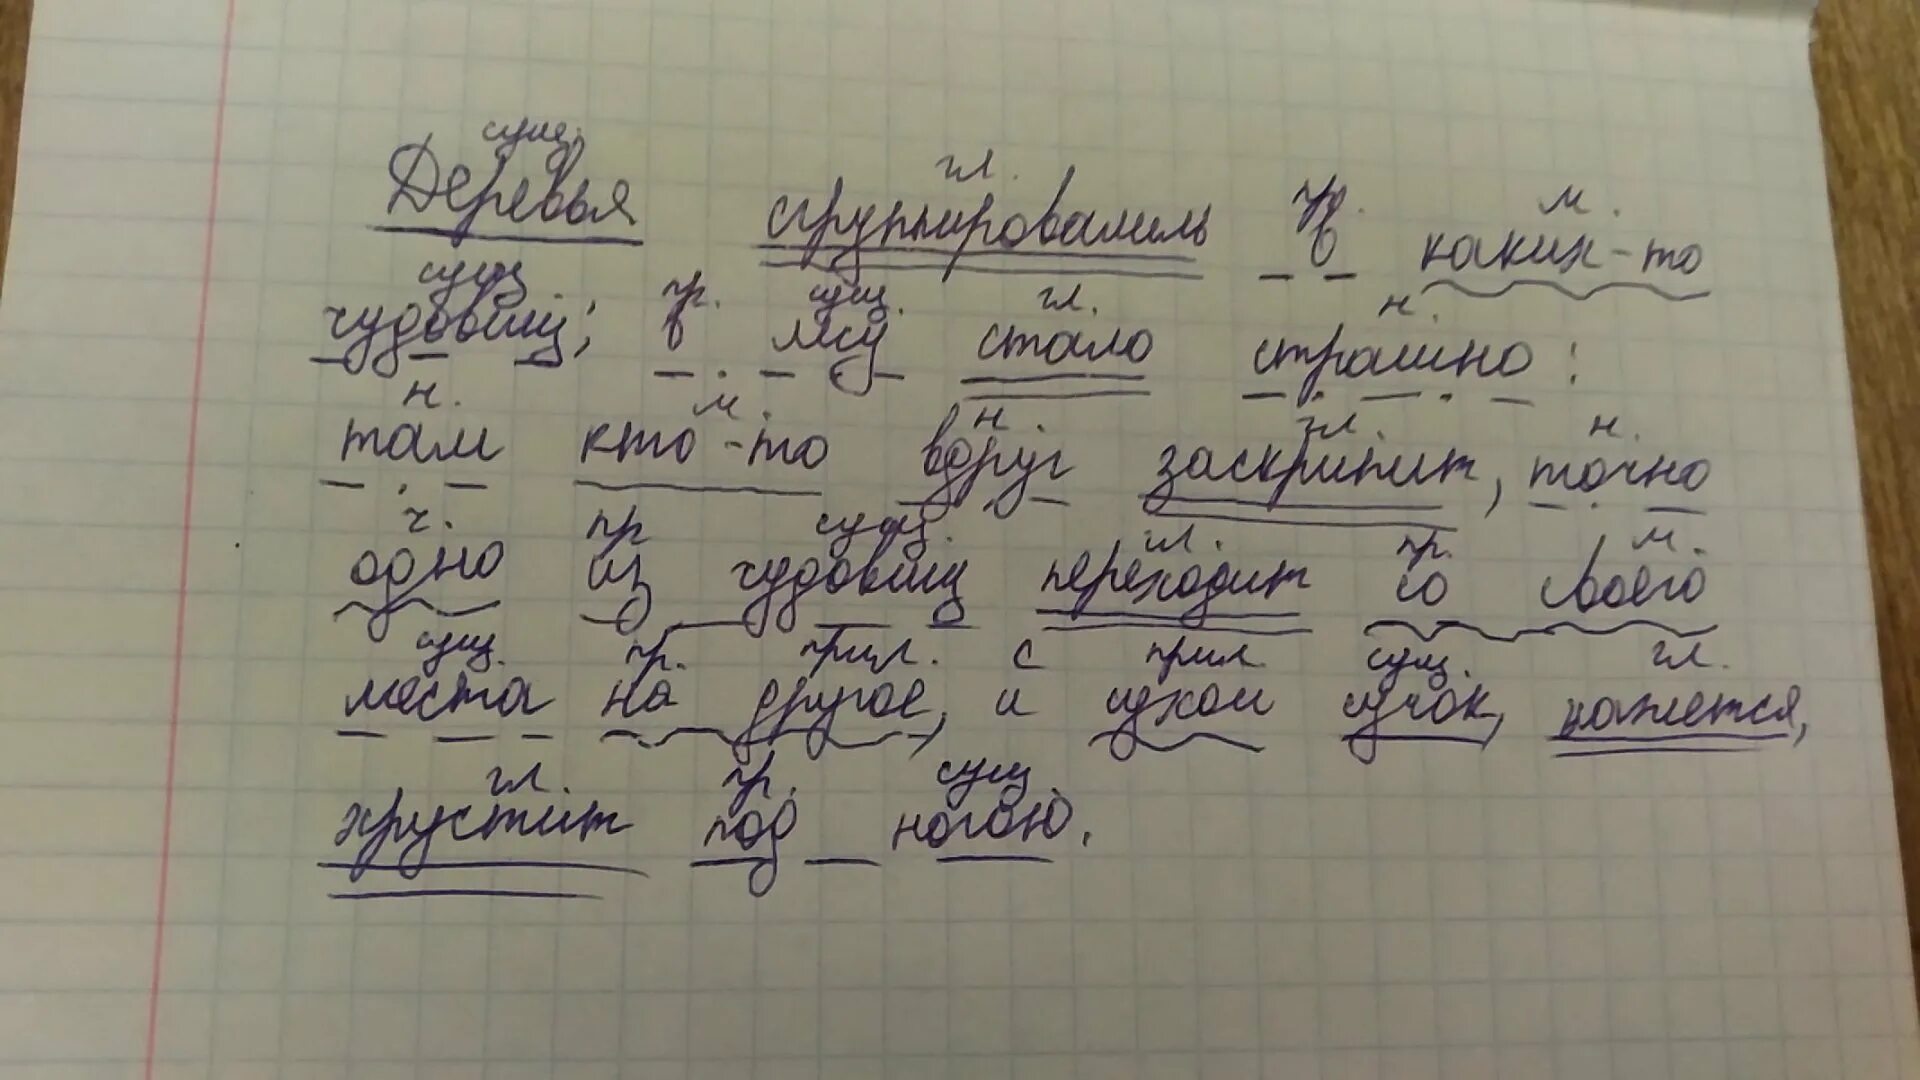 сущ. гл. пр. м.
Деревья сгруппировались в каких-то
сущ пр. сущ. гл. н.
чудовищ; в лесу стало страшно:
н. м. н. гл. н.
там кто-то вдруг заскрипит, точно
ч. пр сущ. гл. пр. м.
одно из чудовищ переходит со своего
сущ. пр. прил. с прил. сущ. гл.
места на другое, и сухой сучок, кажется,
гл. пр. сущ.
хрустит под ногою.